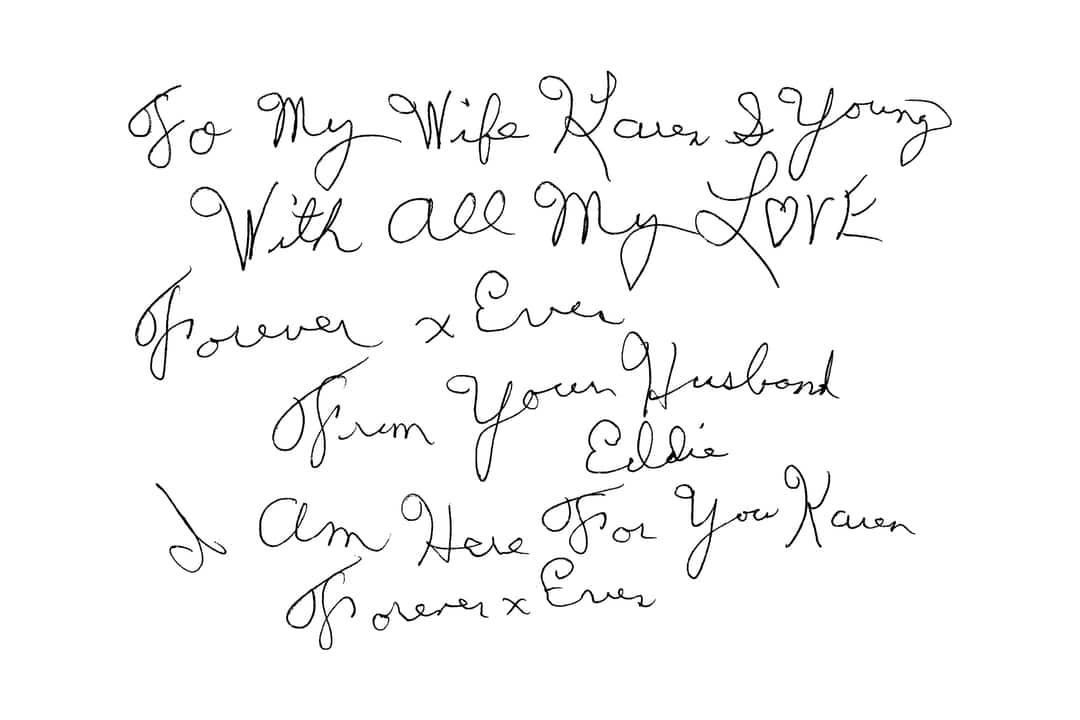 To My Wife Karen S Young
With All My L♡VE
Forever x Ever
From Your Husband
Eddie
I Am Here For You Karen
Forever x Ever